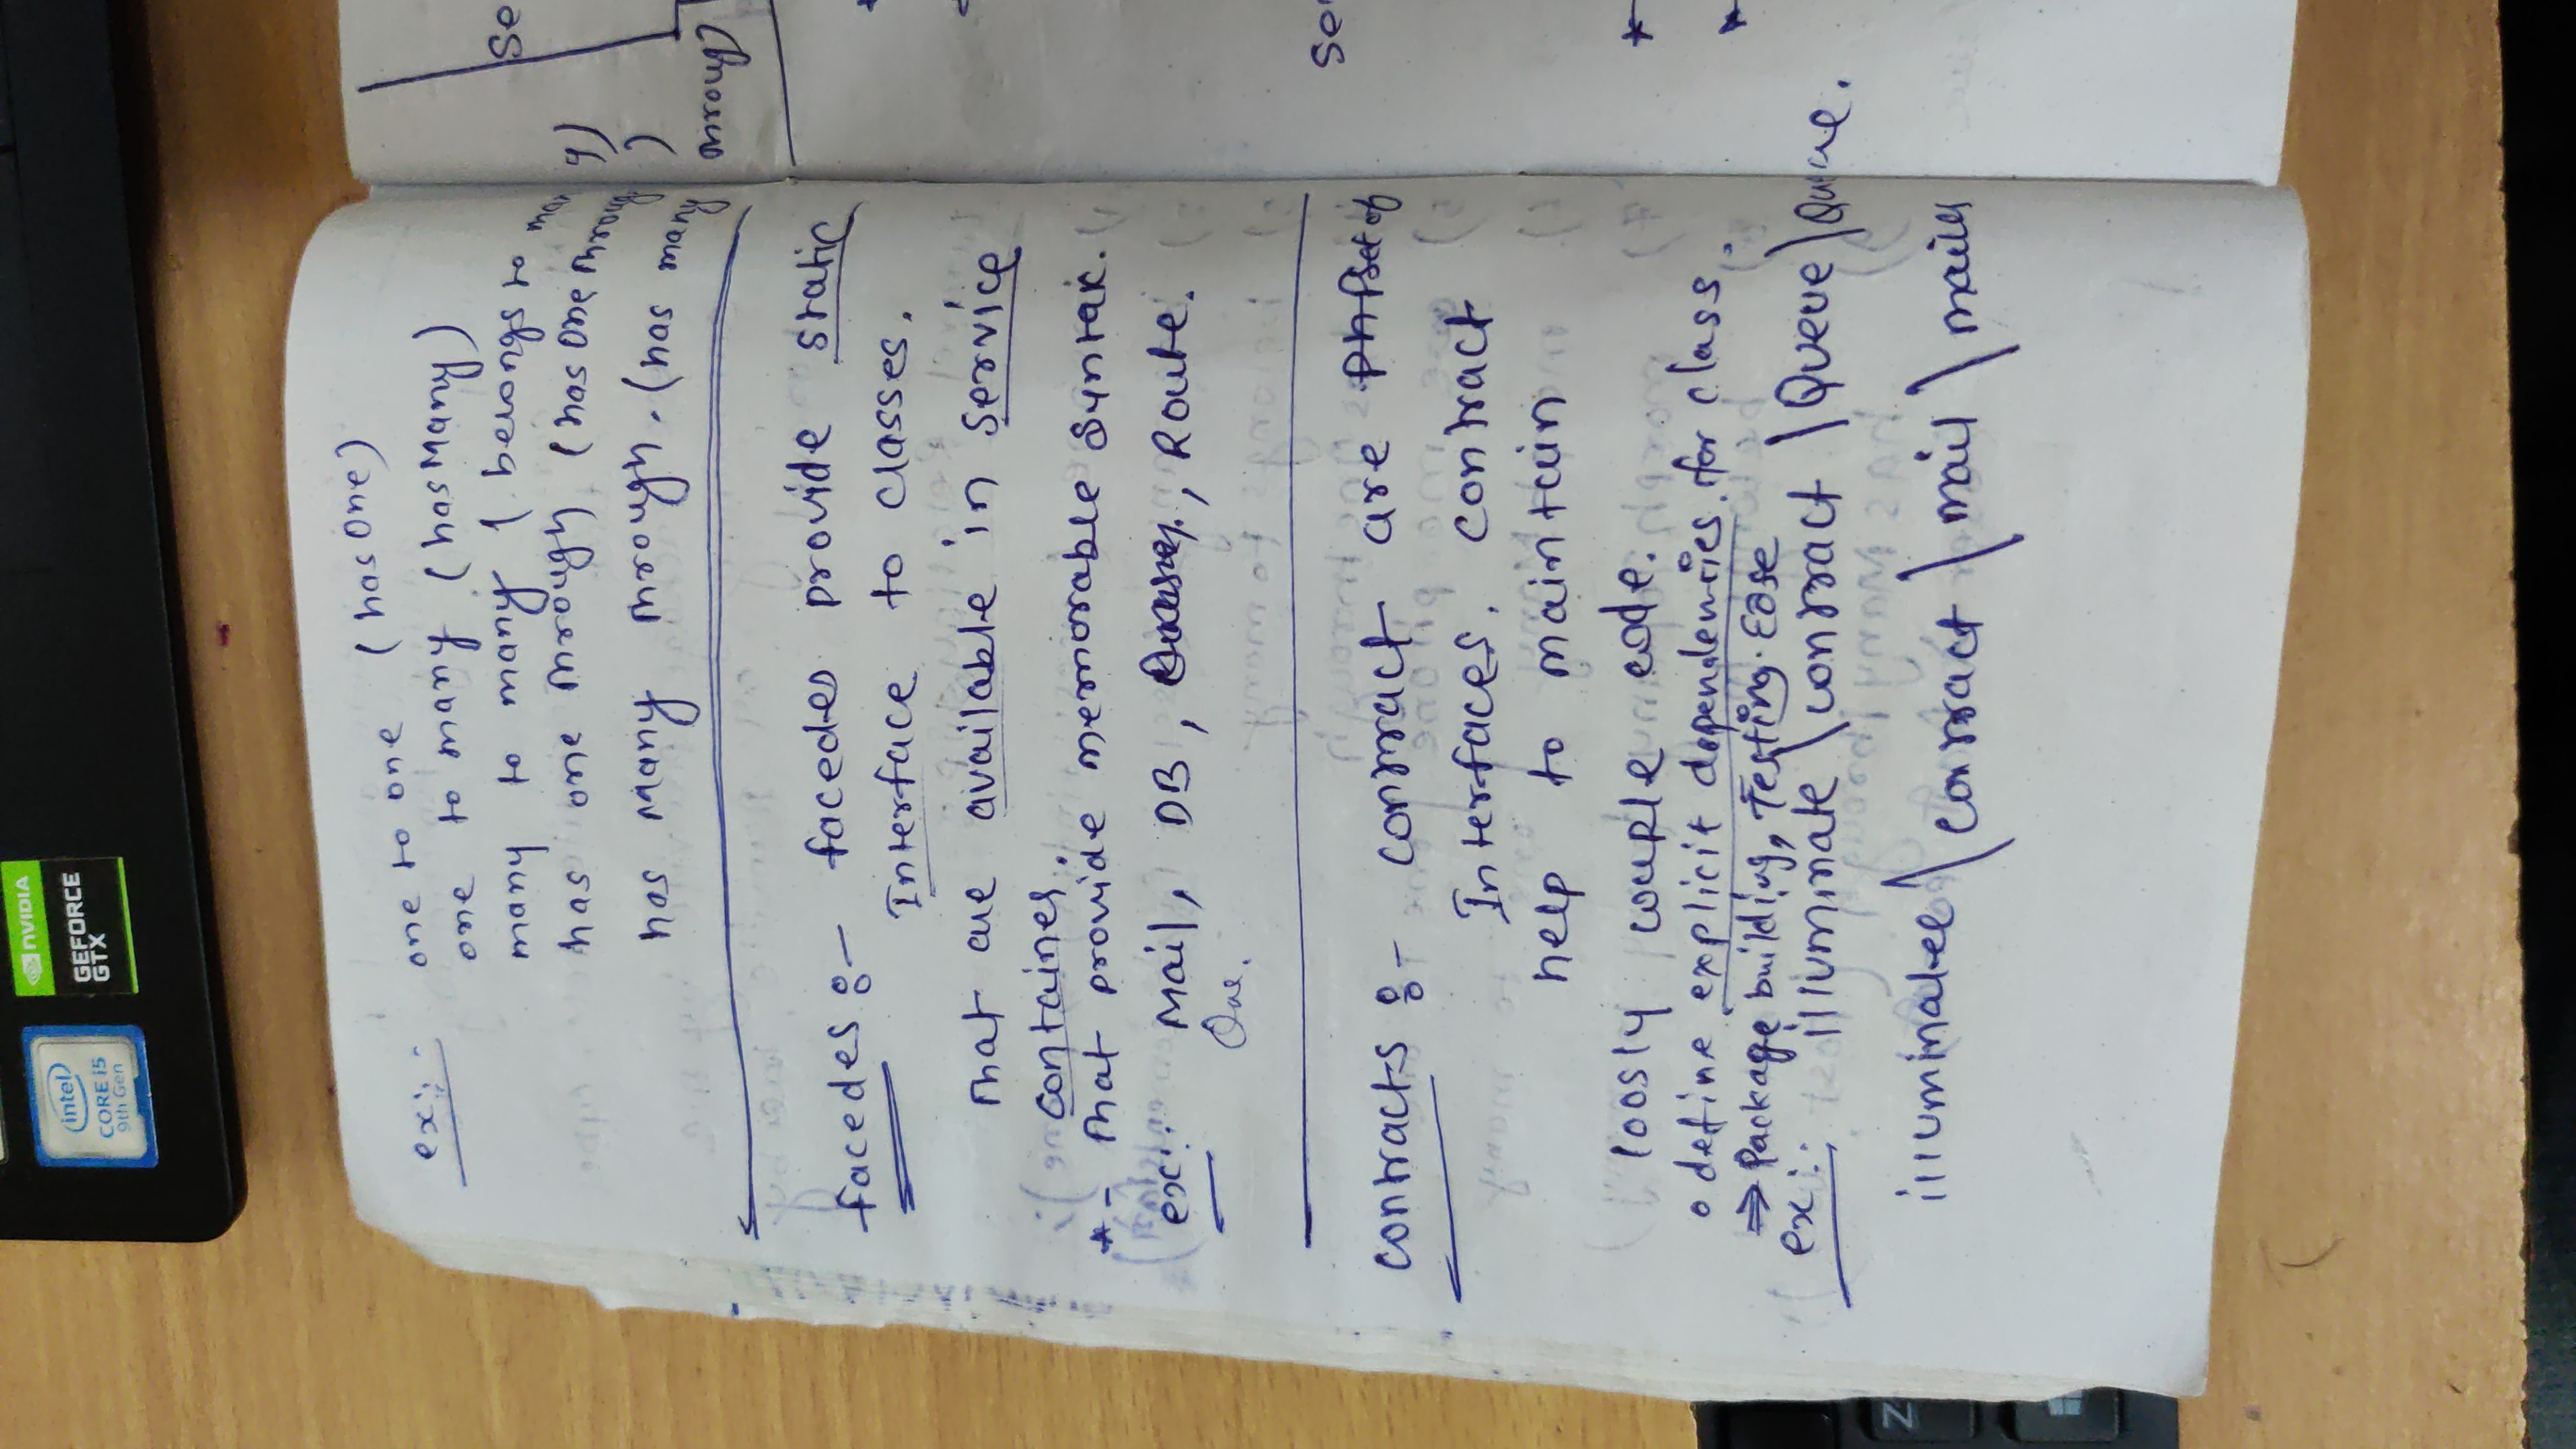 intel
CORE i5
9th Gen
NVIDIA
GEFORCE
GTX
ex:- one to one (hasOne)
one to many (hasMany)
many to many ( belongs to many)
has one through (has One Through)
has Many through. (has many throug)
facedes :- facedes provide static
Interface to classes.
that are available in service
container.
* - that provide memorable Syntax.
ex:- Mail, DB, , Route.
Que.
contracts :- contract are set of
Interfaces. contract
help to maintain
loosly couple code.
o define explicit dependencies for class.
⇒ Package building, Testing. Ease
ex:- illuminate \ contract \ Queue \ Queue.
illuminatee \ contract \ mail \ mailer
Se
Se
*
Z